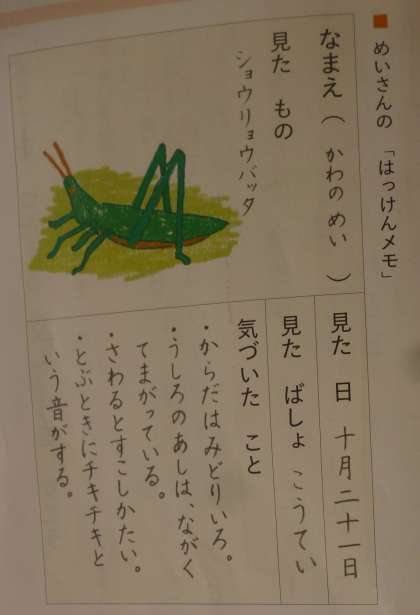 ■ めいさんの「はっけんメモ」
なまえ（ かわの めい ）
見た もの
ショウリョウバッタ
見た 日 十月二十一日
見た ばしょ こうてい
気づいた こと
・からだはみどりいろ。
・うしろのあしは、ながく
てまがっている。
・さわるとすこしかたい。
・とぶときにチキチキと
いう音がする。